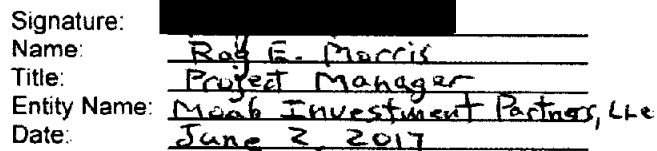 Signature:
Name: Roy E. Morris
Title: Project Manager
Entity Name: Moab Investment Partners, LLC
Date: June 2, 2017